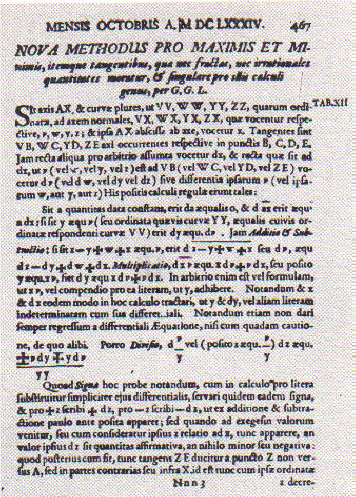 MENSIS OCTOBRIS A. M DC LXXXIV. 467
NOVA METHODUS PRO MAXIMIS ET MI-
nimis, itemque tangentibus, quæ nec fractas, nec irrationales
quantitates moratur, & singulare pro illis calculi
genus, per G. G. L.
Sit axis AX, & curvæ plures, ut VV, WW, YY, ZZ, quarum ordi- TAB. XII
natæ, ad axem normales, VX, WX, YX, ZX, quæ vocentur respe-
ctive, v, w, y, z; & ipsa AX abscissa ab axe, vocetur x. Tangentes sint
VB, WC, YD, ZE axi occurrentes respective in punctis B, C, D, E.
Jam recta aliqua pro arbitrio assumta vocetur dx, & recta quæ sit ad
dx, ut v (vel w, vel y, vel z) est ad VB (vel WC, vel YD, vel ZE) vo-
cetur dv (vel dw, vel dy vel dz) sive differentia ipsarum v (vel ipsa-
rum w, aut y, aut z) His positis calculi regulæ erunt tales:
Sit a quantitas data constans, erit da æqualis 0, & d ax erit æqu.
a dx: si sit y æqu. v (seu ordinata quævis curvæ YY, æqualis cuivis or-
dinatæ respondenti curvæ VV) erit dy æqu. dv. Jam Additio & Sub-
tractio: si sit z - y + w + x æqu. v, erit d z - y + w + x seu dv, æqu
dz - dy + dw + dx. Multiplicatio, d x v æqu. x dv + v dx, seu posito
y æqu. xv, fiet dy æqu x dv + v dx. In arbitrio enim est vel formulam,
ut xv, vel compendio pro ea literam, ut y, adhibere. Notandum & x
& dx eodem modo in hoc calculo tractari, ut y & dy, vel aliam literam
indeterminatam cum sua differentiali. Notandum etiam non dari
semper regressum a differentiali Æquatione, nisi cum quadam cautio-
ne, de quo alibi. Porro Divisio, d v/y vel (posito z æqu. v/y) dz æqu.
± v dy ∓ y dv
yy
Quoad Signa hoc probe notandum, cum in calculo pro litera
substituitur simpliciter ejus differentialis, servari quidem eadem signa,
& pro + z scribi + dz, pro - z scribi - dz, ut ex additione & subtra-
ctione paulo ante posita apparet; sed quando ad exegesin valorum
venitur, seu cum consideratur ipsius z relatio ad x, tunc apparere, an
valor ipsius dz sit quantitas affirmativa, an nihilo minor seu negativa:
quod posterius cum fit, tunc tangens ZE ducitur a puncto Z non ver-
sus A, sed in partes contrarias seu infra X, id est tunc cum ipsæ ordinatæ
Nnn 3 z decre-